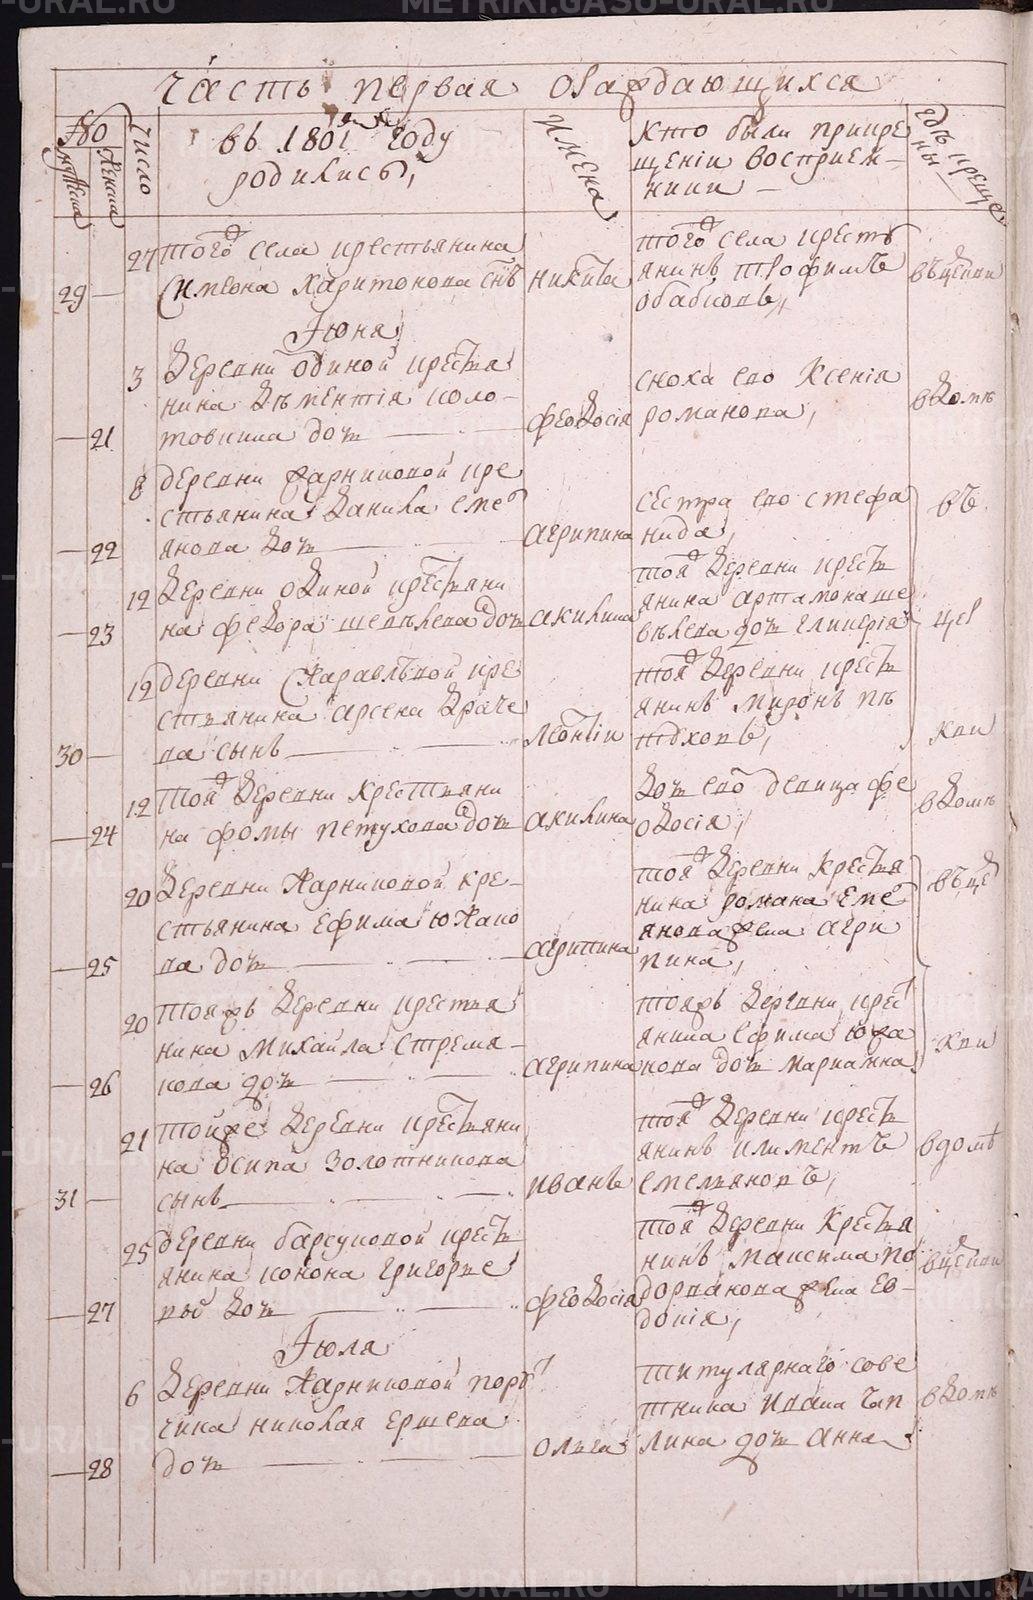 METRIKI.GASO-URAL.RU
часть первая ораждающихся
No
мужска
женска
число
въ 1801 году
родились,
имена
кто были прикре
щеніи восприем-
ники —
гдѣ креще
ны
27 того села крестьянина
29 — Симеона Харитонова снъ
никита
того села кресть
янинъ трофимъ
въ церкви
Іюня
3 деревни одиной крестья
нина дѣментія коло-
— 21 товкина доч
феодосія
сноха его Ксенія
романова,
в домѣ
8 деревни жарниковой кре
стьянина данила еме
— 22 янова доч
агрипина
сестра его стефа
нида,
въ
12 деревни одиной крестьяни
— 23 на федора шевѣлева доч
акилина
той деревни крест
янина артамона ше
вѣлева доч гликерія
цер
12 деревни Караельной кре
стьянина арсена Драче
30 — ва сынъ
леонтіи
той деревни крест
янинъ миронъ пѣ
тухоръ,
кви
12 той деревни крестьяни
— 24 на фомы петухова доч
акилина
доч его девица фе
одосія,
в домѣ
20 деревни жарниковой кре-
стьянина Ефима южако
— 25 ва доч
агрипина
той деревни крестья
нина романа Еме
янова жена агри
пина,
въ це
20 тояжъ деревни крестья
нина михайла Стрема-
— 26 кова доч
агрипина
тояжъ деревни крес
янина Ефима южа
кова доч марианна
кви
21 тойже деревни крестьяни
на осипа золотникова
31 — сынъ
иванъ
той деревни крест
янинъ климентъ
емельяновъ,
в домѣ
25 деревни барсуковой крест
янина конона григорье
— 27 выͨ доч
феодосія
той деревни Крестья
нинъ максима по
дорванова жена ев-
докія,
в церкви
Іюля
6 деревни жарниковой пору
чика николая ершева
— 28 доч
ольга
титулярнаго сове
тника ивана чап
лина доч анна
в домѣ